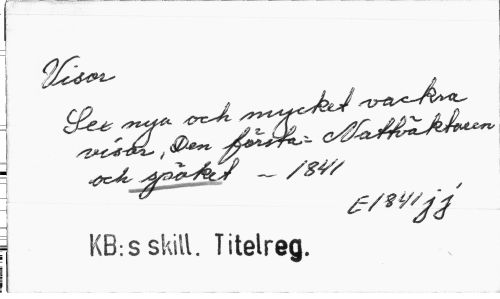 Visor
Sex nya och mycket vackra
visor, Den första: Nattväktaren
och spöket - 1841
E1841jj
KB:s skill. Titelreg.